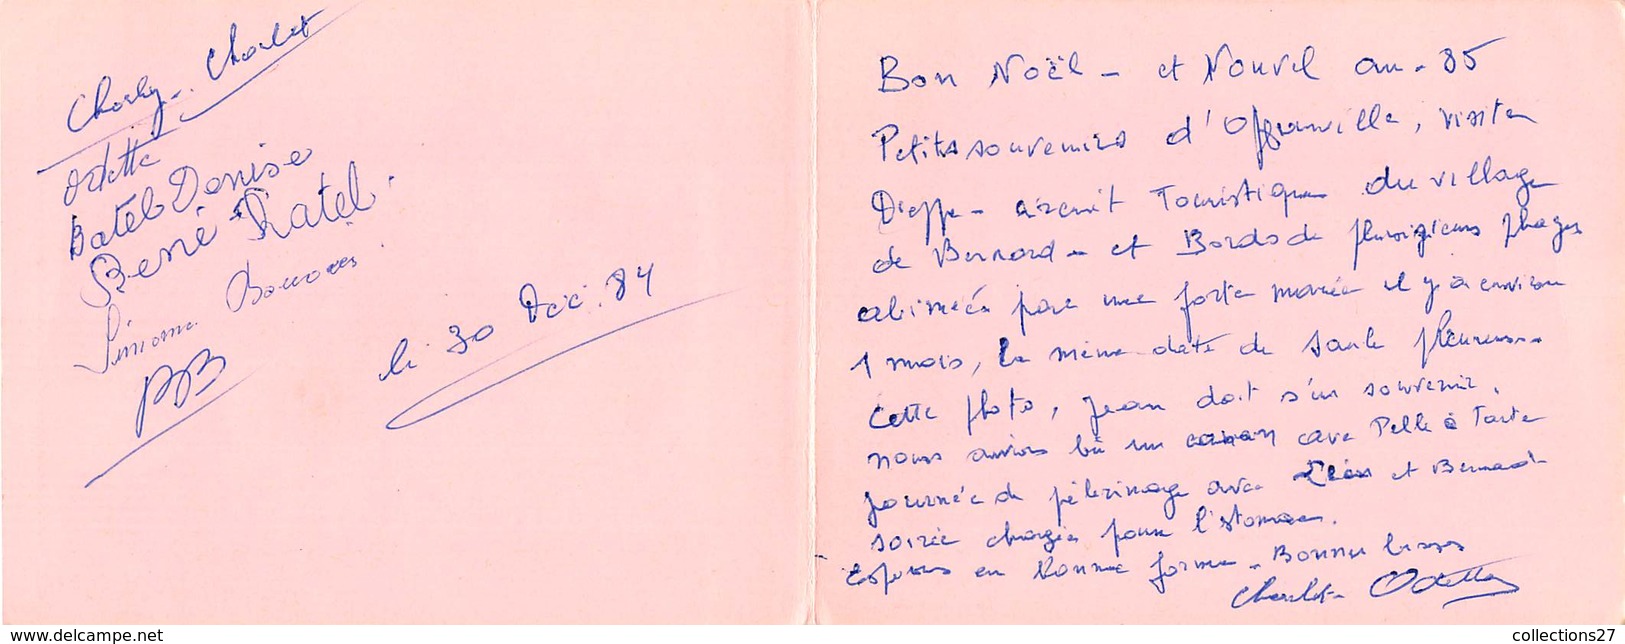 Charly - Charlot
Odette
Batel Denise
René Ratel.
Simone
PB
le 30 Déc. 84
Bon Noël - et Nouvel an - 85
Petits souvenirs d'Offranville, visite
Dieppe - circuit Touristique du village
de Bernard - et Bords de plusieurs plages
abimées par une forte marée il y a environ
1 mois, la même date de saule pleureur -
cette photo, Jean doit s'en souvenir.
nous avions bu un cave Pelle à Tarte
journée de pèlerinage avec Léon et Bernard -
soirée chargée pour l'estomac.
Espérons en bonne forme - Bonnes bises
Charlot - Odette
collections27